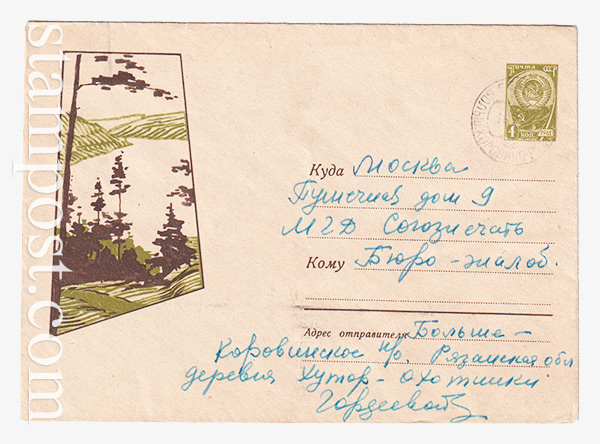 stampost.com
ПОЧТА СССР
4 КОП
Куда Москва
Пушечная дом 9
МГД Союзпечать
Кому Бюро - жалоб.
Адрес отправителя: Больше-
Коровинское п/о. Рязанская обл
деревня Хутор - охотники
Гордеевой